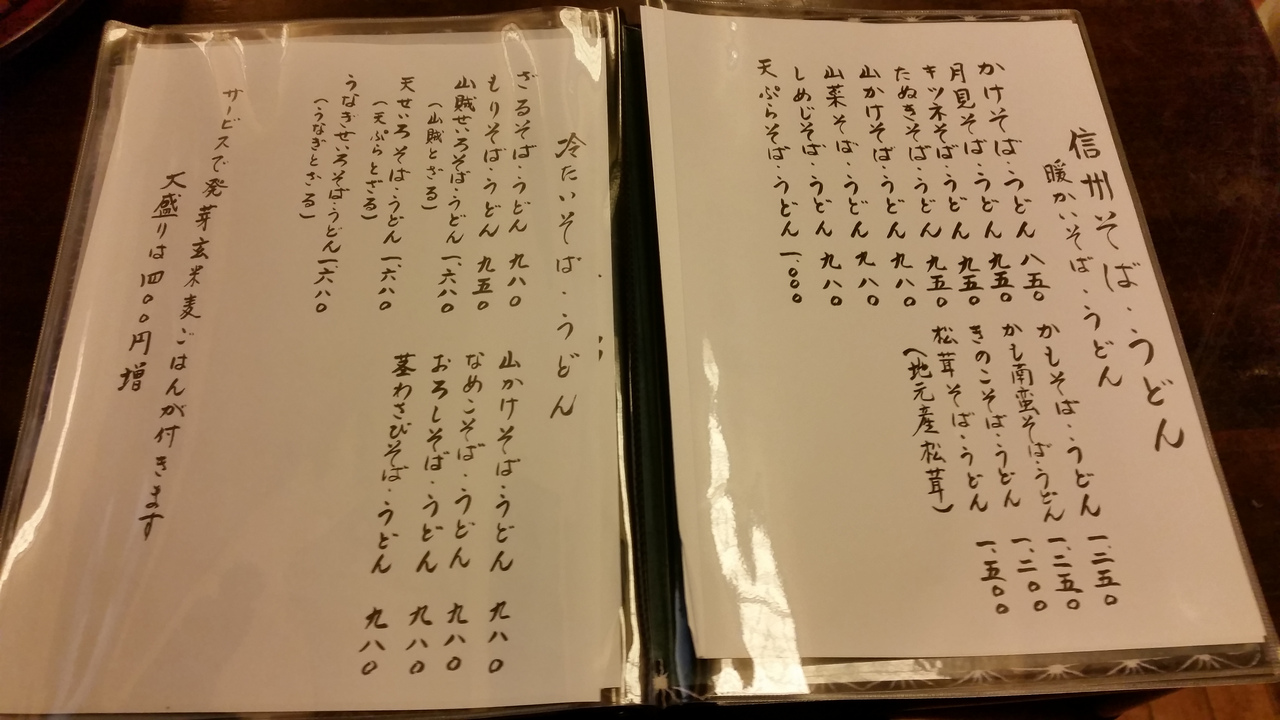 信州そば・うどん
暖かいそば・うどん
かけそば・うどん 八五〇
月見そば・うどん 九五〇
キツネそば・うどん 九五〇
たぬきそば・うどん 九五〇
山かけそば・うどん 九八〇
山菜そば・うどん 九八〇
しめじそば・うどん 九八〇
天ぷらそば・うどん 一、〇〇〇
かもそば・うどん 一、二五〇
かも南蛮そば・うどん 一、二五〇
きのこそば・うどん 一、二〇〇
松茸そば・うどん 一、五〇〇
(地元産松茸)
冷たいそば・うどん
ざるそば・うどん 九八〇
もりそば・うどん 九五〇
山賊せいろそば・うどん 一、六八〇
(山賊とざる)
天せいろそば・うどん 一、六八〇
(天ぷらとざる)
うなぎせいろそば・うどん 一、六八〇
(うなぎとざる)
山かけそば・うどん 九八〇
なめこそば・うどん 九八〇
おろしそば・うどん 九八〇
茎わさびそば・うどん 九八〇
サービスで発芽玄米麦ごはんが付きます
大盛りは四〇〇円増